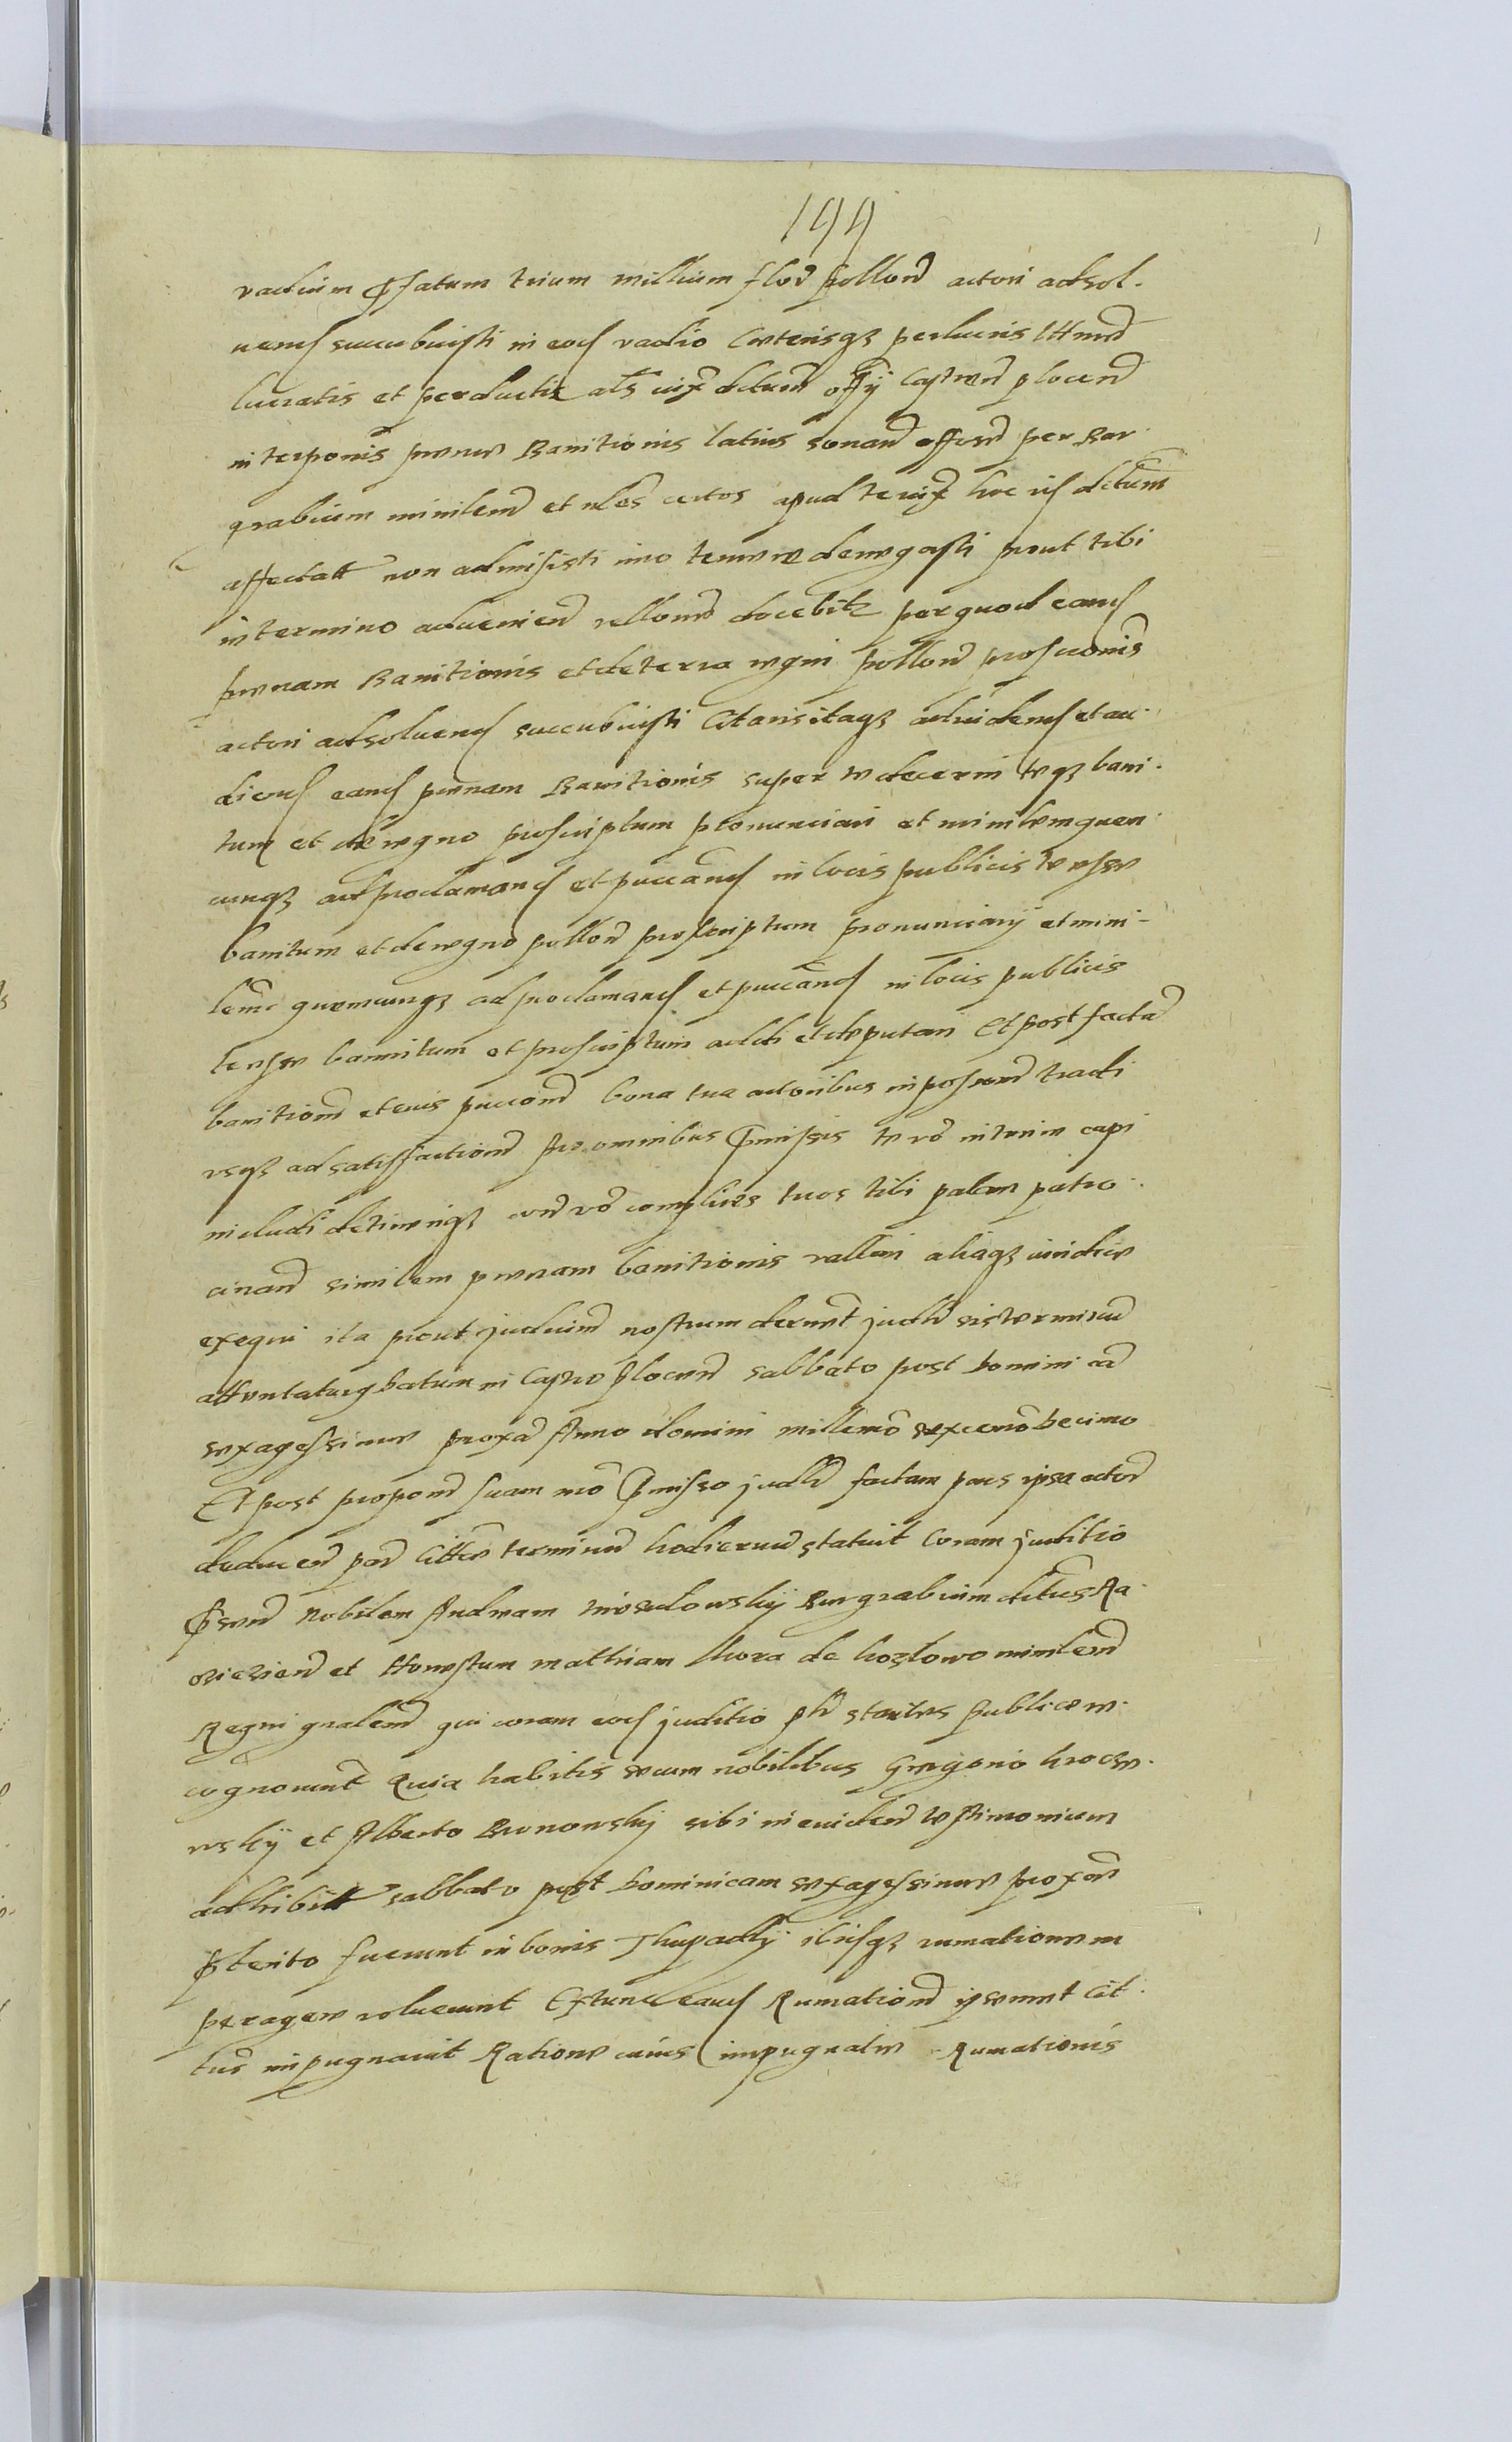 199
vadium pfatum trium millium flor pollon actori adsol-
uend succubuisti in eod vadio Ceterisqz perlucris
lucratis et perductis als iux dctum offy Castren plocen
interponis penes Banitionis latius sonan offren per Bur
grabium minilem et nles certos apud te iux hoc iis dctum
affectatt non admisisti imo temere denegasti prout tibi
in termino advenien docebitr per quod eand
penam Banitionis et de terra regni pollon proscronis
actori adsoluend succubuisti Citaris itaqz ad videnduf et au-
diend eand penam Banitionis super te decerni teqz bani-
tum et de regno proscriptum pronunciari et minilem quen-
cunqz ad proclamand et puccand in locis publicis te esse
banitum et de regno pollon proscriptum pronunciary et mini-
lem quemcunqz ad proclamand et puccand in locis publicis
te esse bannitum et proscriptum addi et deputari Et post facta
banitiom et eius puccom bona tua actoribus in posessm tradi
usqz ad satisfactiom pro omnibus pmissis te vo interim capi
includi detineriqz vo complices tuos tibi palam patro-
cinan similem penam banitionis vallari aliaqz iuridice
exequi ita prout judicium nostrum decreuet judr sis terminu
attentaturg Datum in Castro plocen Sabbato post Dominica
sexagessimae proxa Anno domini millemo sexcemo Decimo
Et post propom suam mo pmisso judlr factam pars ipsa actor
deducen par Citten terminu hodiernu statuit Coram juditio
psen Nobilem Andream Burgrabium dctus Ra-
ciezien et Honestum mathiam kora de kozlowo minilem
Regni gnalem qui coram eod juditio plr stantes publice re-
cognouerunt Quia habitis secum nobilibus Gregorio kroce-
wsky et Alberto Bronowsky sibi in euiden testimonium
adhibitt sabbato post Dominicam sexagessimae proxe
pterito fuerunt in bonis Thupadly ibiqz rumationem
peragere voluerunt Extunc eand Rumatiom ipsemet Cit-
tus impugnauit Ratione cuius impugnatae Rumationis